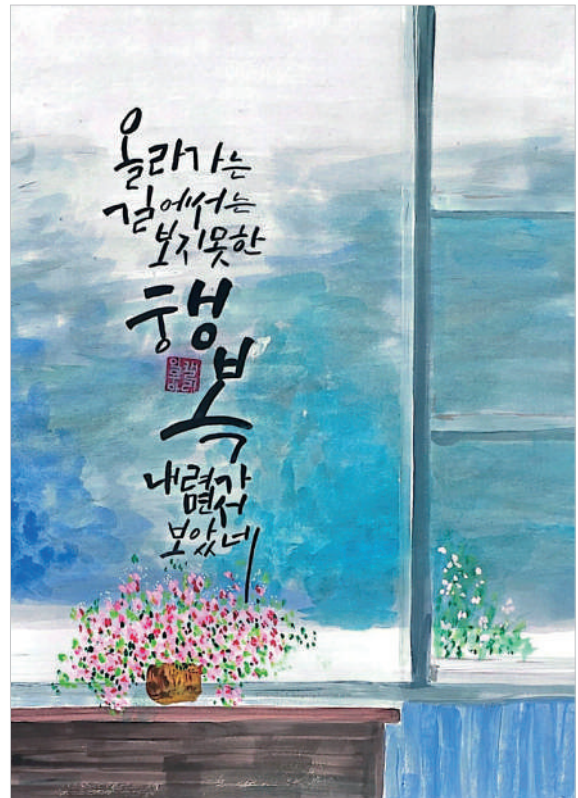 올라가는
길에서는
보지못한
행
복
내려가
면서
보았네